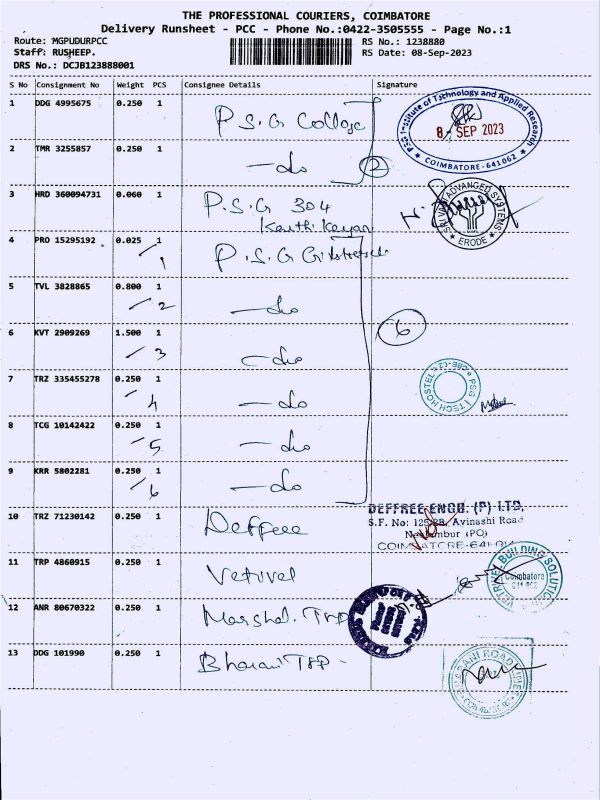 THE PROFESSIONAL COURIERS, COIMBATORE
Delivery Runsheet - PCC - Phone No.:0422-3505555 - Page No.:1
Route: MGPUDURPCC
Staff: RUSHEEP.
DRS No.: DCJB123888001
RS No.: 1238880
RS Date: 08-Sep-2023
S No Consignment No Weight PCS Consignee Details Signature
1 DDG 4995675 0.250 1 P.S.G College
PSG Institute of Technology and Applied Research
8 SEP 2023
COIMBATORE-641062
2 TMR 3255857 0.250 1 -do 2
3 HRD 360094731 0.060 1 P.S.G 304
ADVANCED SYSTEMS
ERODE
4 PRO 15295192 0.025 1 P.S.G
1
5 TVL 3828865 0.800 1 -do
2
6 KVT 2909269 1.500 1 -do
3
6
7 TRZ 335455278 0.250 1 -do
4
PSG iTECH HOSTEL
8 TCG 10142422 0.250 1 -do
5
9 KRR 5802281 0.250 1 -do
6
10 TRZ 71230142 0.250 1 Deffree
DEFFREE ENGG. (P) LTD.
S.F. No: Avinashi Road
(PO)
11 TRP 4860915 0.250 1 Vetrivel
VETRIVEL BUILDING SOLUTION
Coimbatore
12 ANR 80670322 0.250 1 Marshal
13 DDG 101990 0.250 1 Bharani